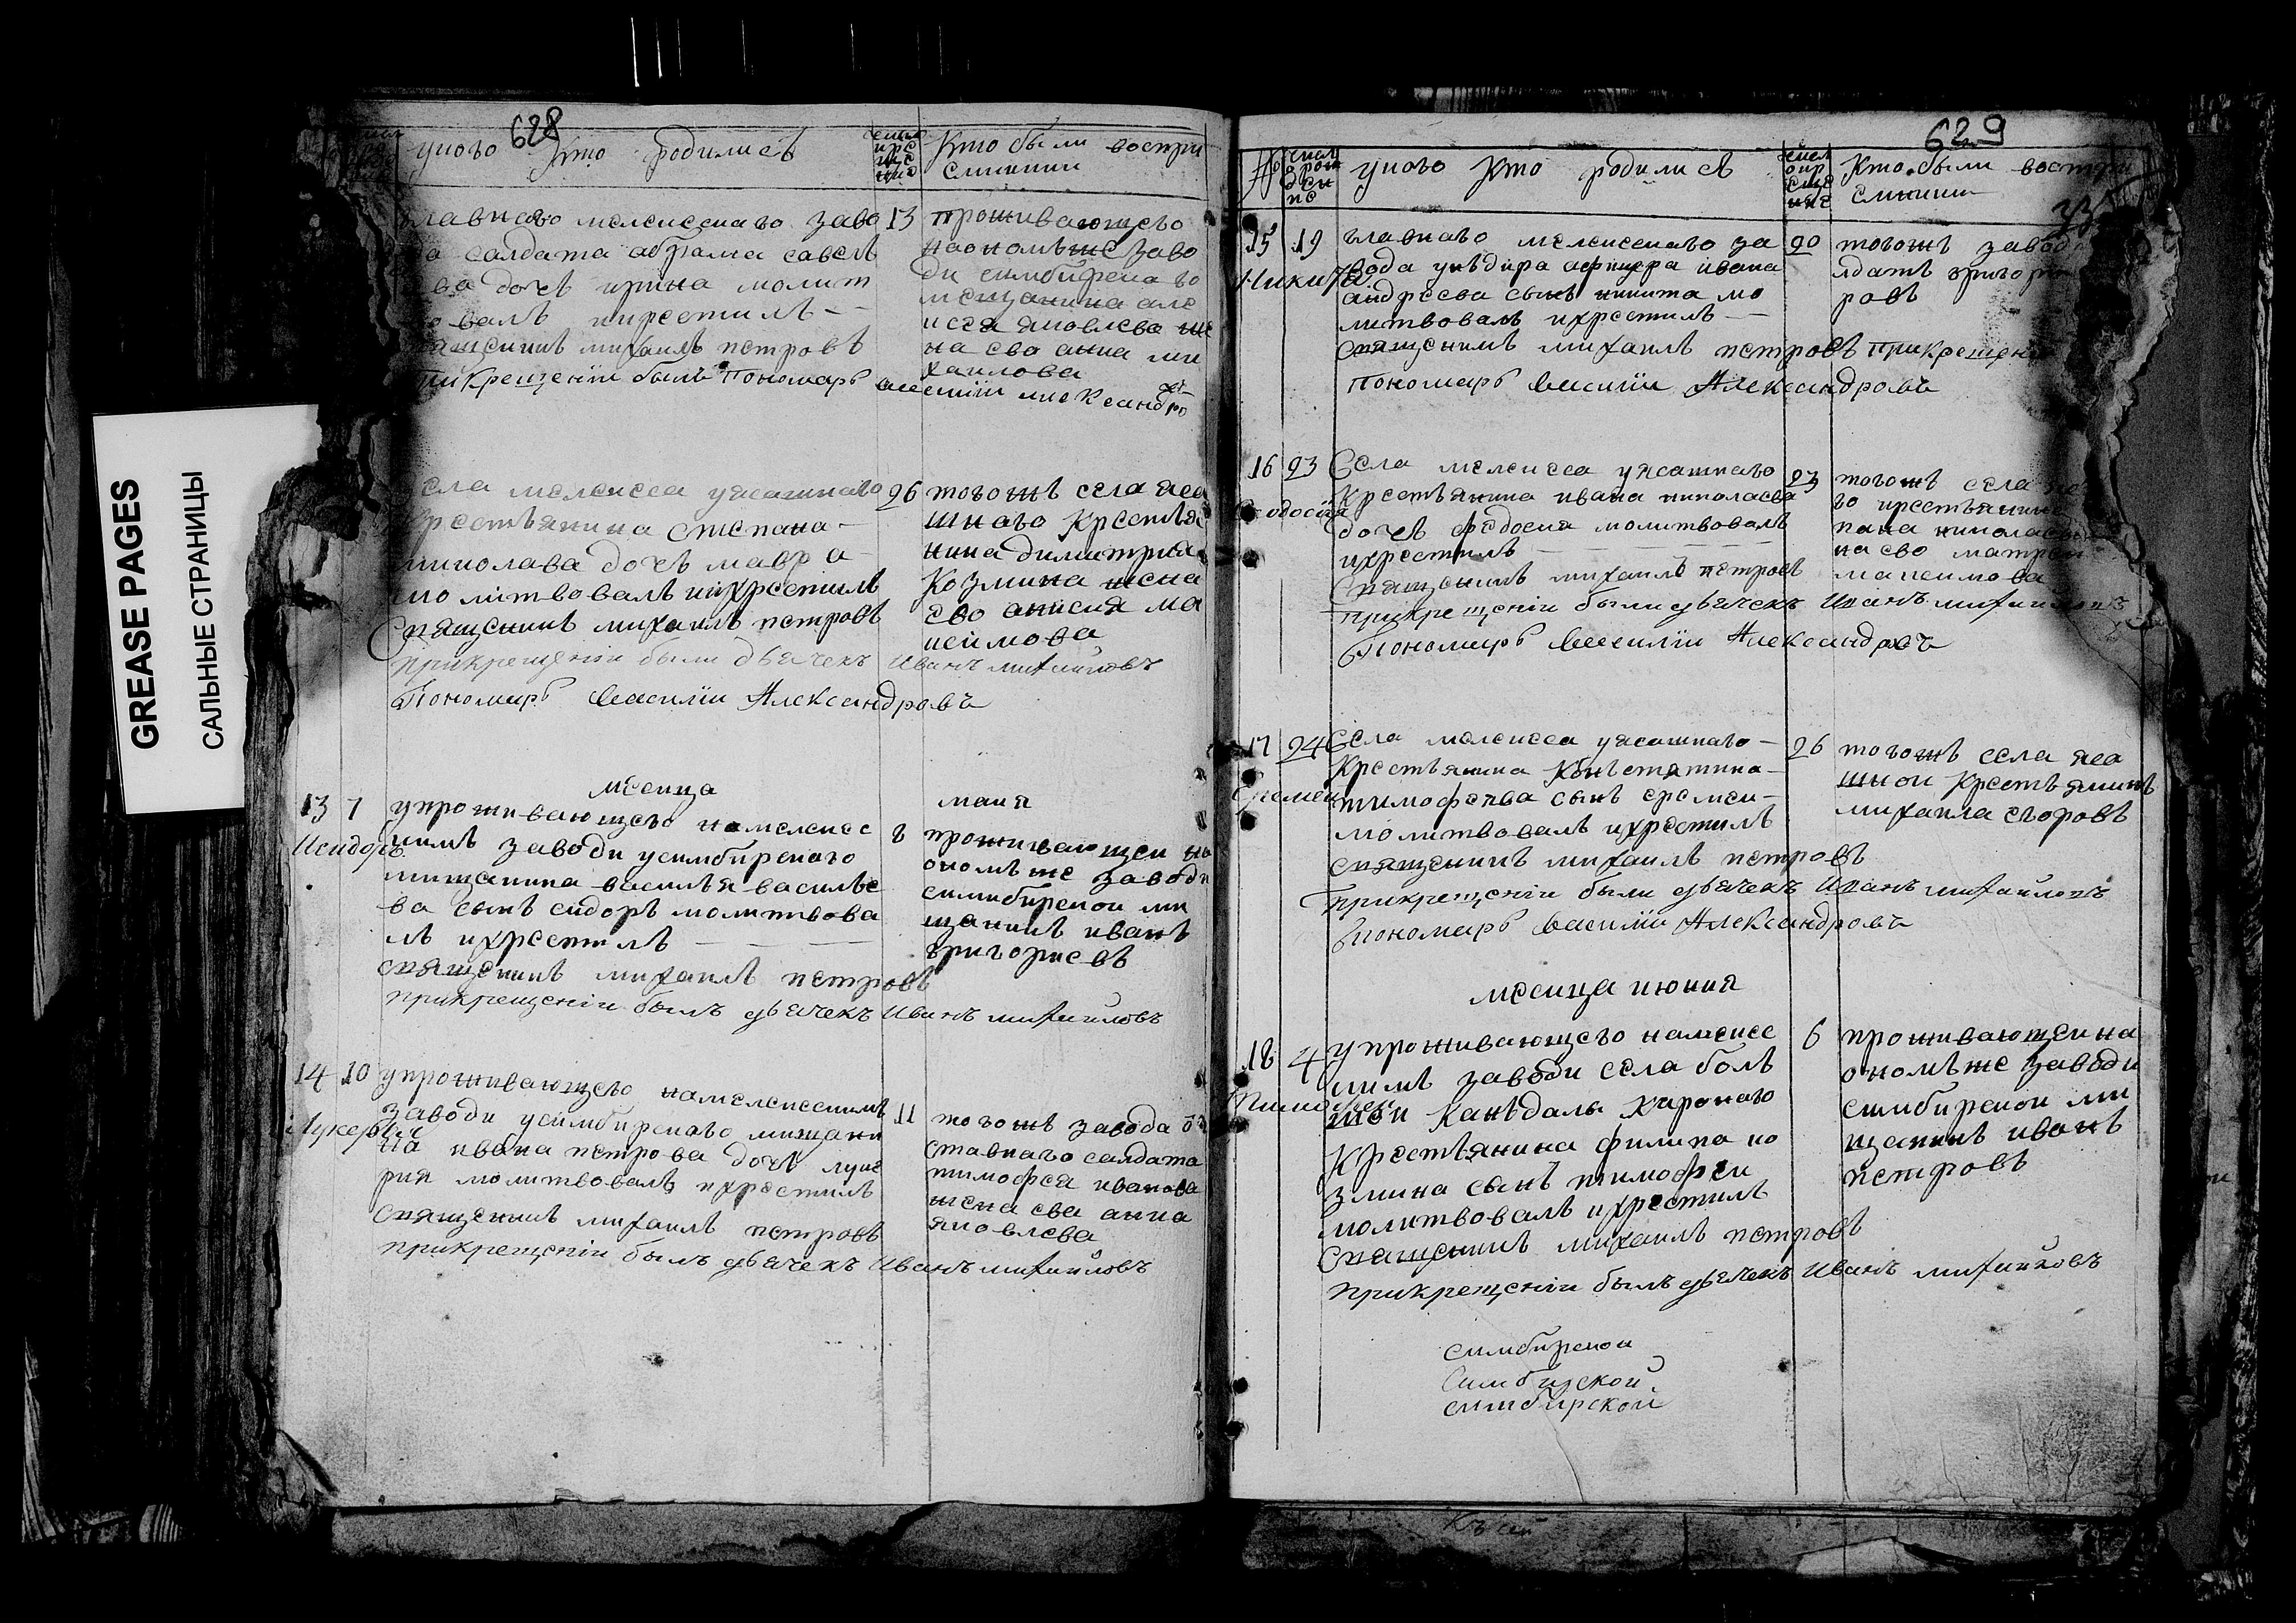 GREASE PAGES
САЛЬНЫЕ СТРАНИЦЫ
628
у кого кто родились
Кто были воспри
емники
главнаго мелекесскаго заво
да салдата абрама савелъ
ева дочь ирина молит
вовалъ икрестилъ
священникъ михаилъ петровъ
при крещеніи былъ пономарь василіи александровъ
13
проживающего
наономъже заво
ди симбирска го
мещанина але
ксея яковлева же
на ево анна ми
хаилова
села мелекесса уясашнаго
крестьянина степана
николава дочь мавра
молитвовалъ икрестилъ
священникъ михаилъ петровъ
при крещеніи были дьячекъ Иванъ михаиловъ
Пономарь василіи Александровъ
26
тогожъ села яса
шнаго крестья
нина димитрия
Козмина жена
ево анисия ма
ксимова
месеца маия
13 7
Исидоръ
упроживающего намелекес
комъ заводи усимбирскаго
мищанина василья василье
ва сынъ сидоръ молитвова
лъ икрестилъ
священникъ михаилъ петровъ
при крещеніи былъ дьячекъ Иванъ михаиловъ
8
проживающеи на
ономъже заводи
симбирскои ми
щанинъ иванъ
григориевъ
14 10
Лукерья
упроживающего намелекескомъ
заводи усимбирскаго мищани
на ивана петрова дочь луке
рия молитвовалъ икрестилъ
священникъ михаилъ петровъ
при крещеніи былъ дьячекъ Иванъ михаиловъ
11
тогожъ завода от
ставнаго салдата
тимофея иванова
жена ева анна
яковлева
629
№
у кого кто родились
Кто были воспри
емники
15 19
Никита
главнаго мелекескаго за
вода унъдира афицера ивана
андреева сынъ никита мо
литвовалъ икрестилъ
священникъ михаилъ петровъ при крещени
пономарь василіи Александровъ
20
тогожъ завода
лдатъ григо
ровъ
16 23
Феодосия
Села мелекесса уясашнаго
крестьянина ивана николаева
дочь федосия молитвовалъ
икрестилъ
священникъ михаилъ петровъ
при крещеніи были дьячекъ Иванъ михаиловъ
Пономарь василіи Александровъ
23
тогожъ села
го крестьянина
николаева
на ево матрена
максимова
17 24
Еремеи
Села мелекесса уясашнаго
Крестьянина Конъстянтина
тимофеева сынъ еремеи
молитвовалъ икрестилъ
священникъ михаилъ петровъ
при крещеніи были дьячекъ Иванъ михаиловъ
пономарь василіи Александровъ
26
тогожъ села яса
шнои крестьянинъ
михаила егоровъ
месеца июния
18 4
Тимофеи
упроживающего намелекес
комъ заводи села болъ
шеи Канъдалы
Крестьянина филипа ко
змина сынъ тимофеи
молитвовалъ икрестилъ
священникъ михаилъ петровъ
при крещеніи былъ дьячекъ Иванъ михаиловъ
6
проживающеи на
ономъже заводи
симбирскои ми
щанинъ иванъ
петровъ
симбирскои
Симбирской
симбирской